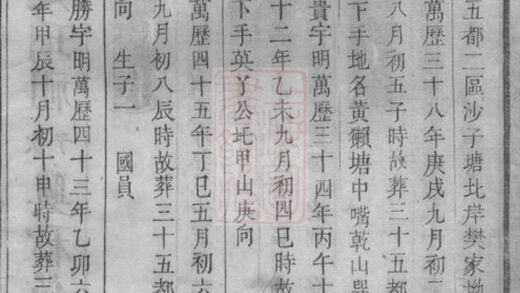 五都二區沙子塘北岸樊家坳
萬歷三十八年庚戌九月初二
八月初五子時故葬三十五都
下手地名黄獺塘中嘴乾山巽
貴字明萬歷三十四年丙午十
十二年乙未九月初四巳時故
下手英丫公坵甲山庚向
萬歷四十五年丁巳五月初六
九月初八辰時故葬三十五都
向 生子一 國員
勝字明萬歷四十三年乙卯六
年甲辰十月初十申時故葬三